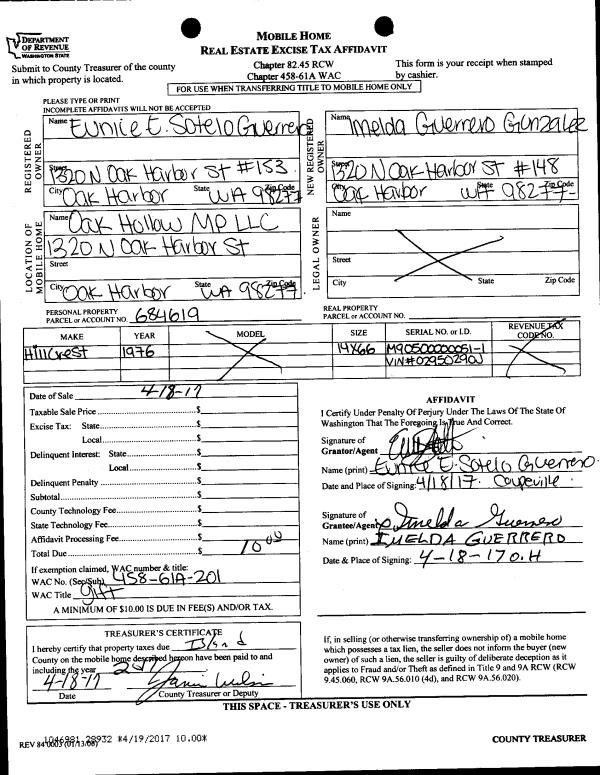 DEPARTMENT
OF REVENUE
WASHINGTON STATE
MOBILE HOME
REAL ESTATE EXCISE TAX AFFIDAVIT
Submit to County Treasurer of the county
in which property is located.
Chapter 82.45 RCW
Chapter 458-61A WAC
This form is your receipt when stamped
by cashier.
FOR USE WHEN TRANSFERRING TITLE TO MOBILE HOME ONLY
PLEASE TYPE OR PRINT
INCOMPLETE AFFIDAVITS WILL NOT BE ACCEPTED
REGISTERED
OWNER
Name Eunice E. Sotelo Guerrero
Street 1320 N Oak Harbor St #153
City Oak Harbor State WA 98277 Zip Code
NEW REGISTERED
OWNER
Name Imelda Guerrero Gunzalez
Street 1320 N Oak Harbor St #148
City Oak Harbor WA State 98277 Zip Code
LOCATION OF
MOBILE HOME
Name Oak Hollow MP LLC
1320 N Oak Harbor St
Street
City Oak Harbor State WA 98277 Zip Code
LEGAL OWNER
Name
Street
City State Zip Code
PERSONAL PROPERTY
PARCEL or ACCOUNT NO. 684619
REAL PROPERTY
PARCEL or ACCOUNT NO.
MAKE YEAR MODEL SIZE SERIAL NO. or I.D. REVENUE TAX
CODE NO.
Hillcrest 1976 14X66 M90500000051-1
VIN#02950290J
Date of Sale 4-18-17
Taxable Sale Price $
Excise Tax: State $
Local $
Delinquent Interest: State $
Local $
Delinquent Penalty $
Subtotal $
County Technology Fee $
State Technology Fee $
Affidavit Processing Fee $
Total Due $ 10 00
If exemption claimed, WAC number & title:
WAC No. (Sec/Sub) 458-61A-201
WAC Title gift
A MINIMUM OF $10.00 IS DUE IN FEE(S) AND/OR TAX.
AFFIDAVIT
I Certify Under Penalty Of Perjury Under The Laws Of The State Of
Washington That The Foregoing Is True And Correct.
Signature of
Grantor/Agent
Name (print) Eunice E. Sotelo Guerrero
Date and Place of Signing: 4/18/17 Coupeville
Signature of
Grantee/Agent Imelda Guerrero
Name (print) IMELDA GUERRERO
Date & Place of Signing: 4-18-17 O.H
TREASURER'S CERTIFICATE
I hereby certify that property taxes due Island
County on the mobile home described hereon have been paid to and
including the year 2017
4-18-17
Date County Treasurer or Deputy
If, in selling (or otherwise transferring ownership of) a mobile home
which possesses a tax lien, the seller does not inform the buyer (new
owner) of such a lien, the seller is guilty of deliberate deception as it
applies to Fraud and/or Theft as defined in Title 9 and 9A RCW (RCW
9.45.060, RCW 9A.56.010 (4d), and RCW 9A.56.020).
THIS SPACE - TREASURER'S USE ONLY
1046981 28932 *4/19/2017 10.00*
REV 84 0003 (01/13/06)
COUNTY TREASURER